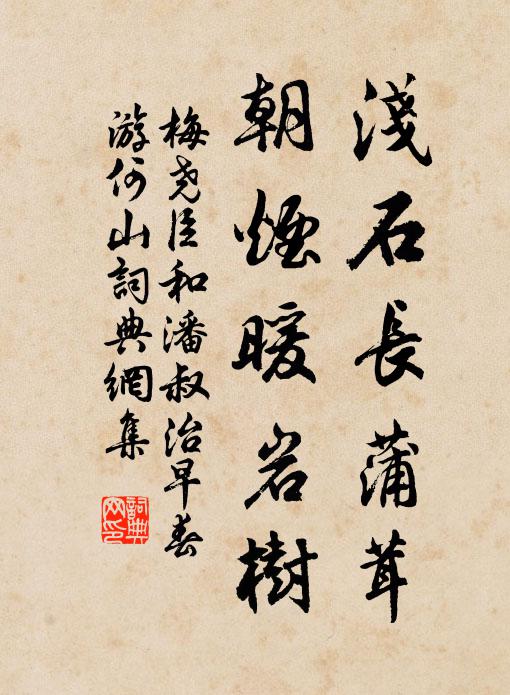 淺石長蒲茸
朝煙暖岩樹
梅堯臣和潘叔治早春
游何山詞典網集
詞典
网印